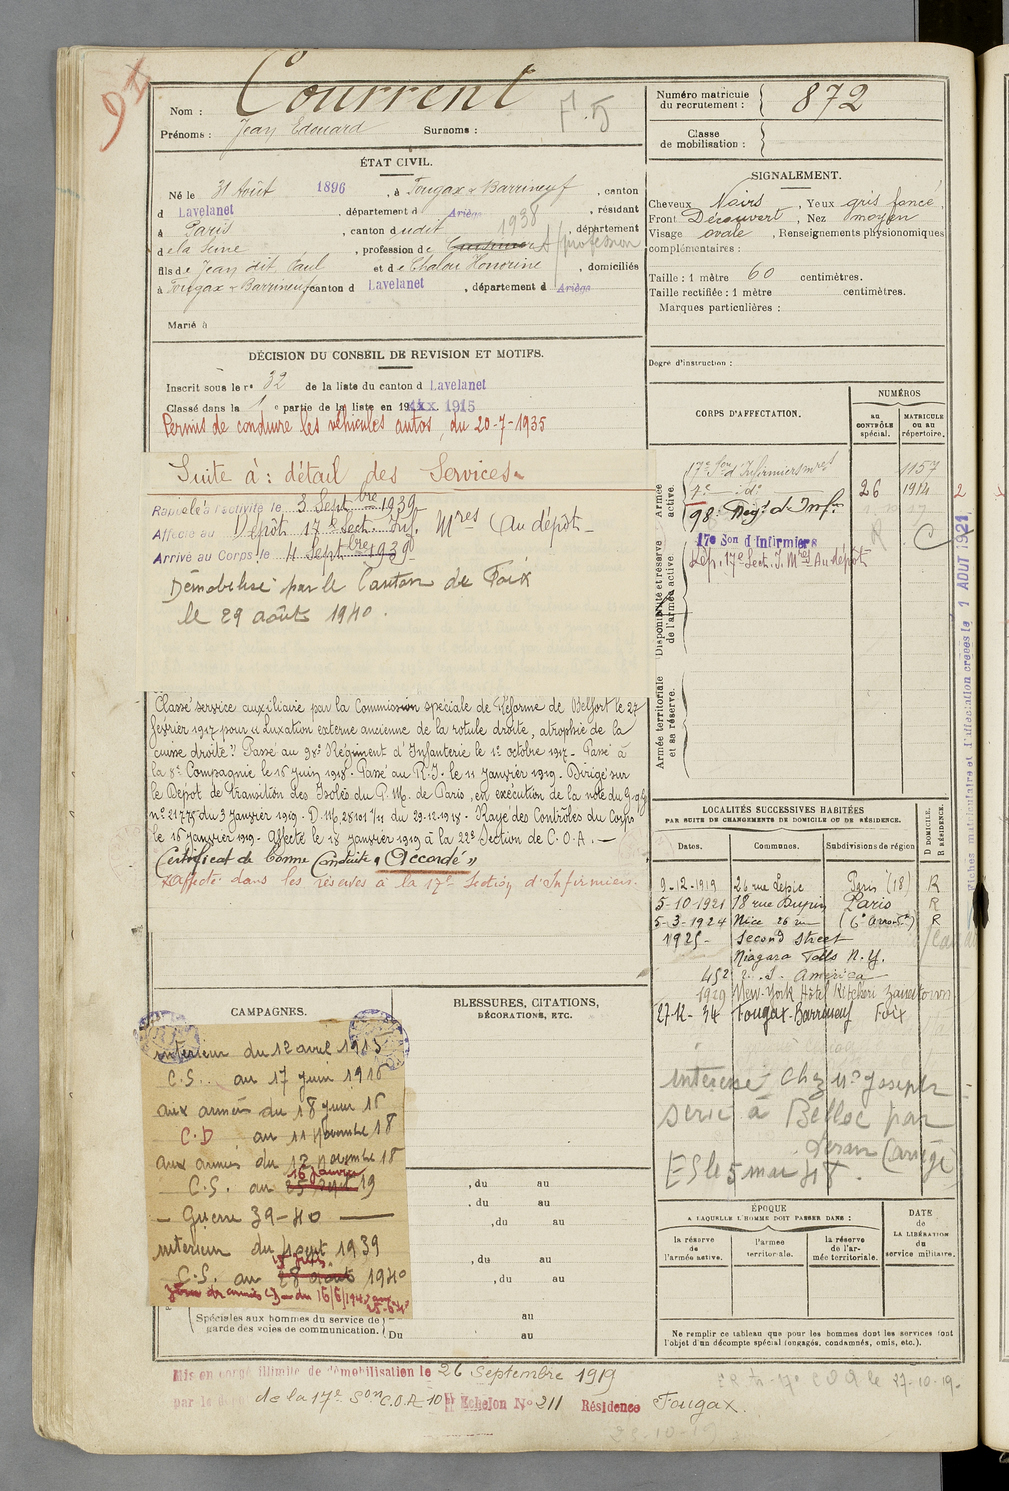 91
Nom : Courrent F.5
Prénoms : Jean Edouard Surnoms :
Numéro matricule du recrutement : 872
Classe de mobilisation :
ÉTAT CIVIL.
Né le 31 Août 1896, à Fougax & Barrineuf, canton
d Lavelanet, département d Ariège, résidant
à Paris, canton dudit 1938, département
de la Seine, profession de Cuisinier profession
fils de Jean dit Paul et de Chalou Honorine, domiciliés
à Fougax & Barrineuf canton d Lavelanet, département d Ariège
Marié à
SIGNALEMENT.
Cheveux Noirs, Yeux gris foncé,
Front Découvert, Nez moyen
Visage ovale, Renseignements physionomiques
complémentaires :
Taille : 1 mètre 60 centimètres.
Taille rectifiée : 1 mètre centimètres.
Marques particulières :
Degré d'instruction :
DÉCISION DU CONSEIL DE REVISION ET MOTIFS.
Inscrit sous le n° 32 de la liste du canton d Lavelanet
Classé dans la 1e partie de la liste en 19 1915
Permis de conduire les véhicules autos, du 20-7-1935
Suite à : détail des Services
Rappelé à l'activité le 3 Septbre 1939
Affecté au Dépôt 17e Sect. Inf. Mres (au dépôt -
Arrivé au Corps le 4 Septbre 1939
Démobilisé par le Canton de Foix
le 29 août 1940.
Classé service auxiliaire par la Commission spéciale de Réforme de Belfort le 27
février 1917 pour « Luxation externe ancienne de la rotule droite, atrophie de la
cuisse droite ». Passé au 98e Régiment d'Infanterie le 1er octobre 1917. Passé à
la 8e Compagnie le 16 Juin 1918. Passé au R.I. le 11 Janvier 1919. Dirigé sur
le Dépot de transition des Isolés du G.M. de Paris, en exécution de la note du G.Q.G
n° 21775 du 3 Janvier 1919. D.M. 28101 1/11 du 29-12-1918. Rayé des Contrôles du Corps
le 16 Janvier 1919. Affecté le 18 Janvier 1919 à la 22e Section de C.O.A. —
Certificat de bonne Conduite « Accordé »
Affecté dans les réserves à la 17e Section d'Infirmiers.
CORPS D'AFFECTATION.
NUMÉROS
au CONTRÔLE spécial.
MATRICULE ou au répertoire.
Armée active.
17e Son d'Infirmiers mres 1157
7e id° 26 1914
98e Régt d'Inf.
Disponibilité et réserve de l'armée active.
17e Son d'Infirmiers
Dép. 17e Sect. I. Mres Au dépôt
R C
Armée territoriale et sa réserve.
Fiches matriculaire et d'affectation créées le 1 AOUT 1921
LOCALITÉS SUCCESSIVES HABITÉES
PAR SUITE DE CHANGEMENTS DE DOMICILE OU DE RÉSIDENCE.
Dates. Communes. Subdivisions de région D DOMICILE. R RÉSIDENCE.
9-12-1919 26 rue Lepic Paris (18) R
5-10-1921 18 rue Dupin Paris R
5-3-1924 Nice 26 (6e Arrondt) R
1925- Second Street
Niagara Falls N.Y.
452 America
1929 New-York Hôtel
27-12-34 Fougax-Barrineuf Foix
interessé chez Mr Joseph
serie à Belloc par
Léran (Ariège)
CAMPAGNES.
interieur du 12 avril 1915
C.S. au 17 juin 1916
aux armées du 18 juin 16
C.D au 11 Novembre 18
aux armés du 12 Novembre 18
16 Janvier
C.S. au 25 Sept 19
— Guerre 39-40 —
interieur du 1 août 1939
C.S. au 28 août 1940
BLESSURES, CITATIONS,
DÉCORATIONS, ETC.
, du au
, du au
, du au
, du au
, du au
Spéciales aux hommes du service de garde des voies de communication. au
Du au
ÉPOQUE
A LAQUELLE L'HOMME DOIT PASSER DANS :
la réserve de l'armée active.
l'armée territoriale.
la réserve de l'armée territoriale.
DATE de LA LIBÉRATION du service militaire.
Ne remplir ce tableau que pour les hommes dont les services font
l'objet d'un décompte spécial (engagés, condamnés, omis, etc.).
Mis en congé illimité de démobilisation le 26 Septembre 1919
par le dépôt de la 17e Son C.O.A 10e Echelon N° 211 Résidence Fougax.